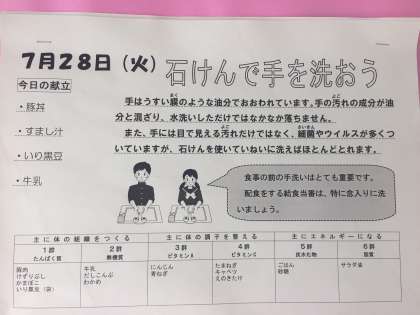 7月28日（火）
石けんで手を洗おう
今日の献立
・豚丼
・すまし汁
・いり黒豆
・牛乳
手はうすい膜のような油分でおおわれています。手の汚れの成分が油
分と混ざり、水洗いしただけではなかなか落ちません。
また、手には目で見える汚れだけではなく、細菌やウイルスが多くつ
いていますが、石けんを使っていねいに洗えばほとんどとれます。
食事の前の手洗いはとても重要です。
配食をする給食当番は、特に念入りに洗
いましょう。
主に体の組織をつくる 主に体の調子を整える 主にエネルギーになる
1群 2群 3群 4群 5群 6群
たんぱく質 無機質 ビタミンA ビタミンC 炭水化物 脂質
豚肉 牛乳 にんじん たまねぎ ごはん サラダ油
けずりぶし だしこんぶ 青ねぎ キャベツ 砂糖
かまぼこ わかめ えのきたけ
いり黒豆（袋）